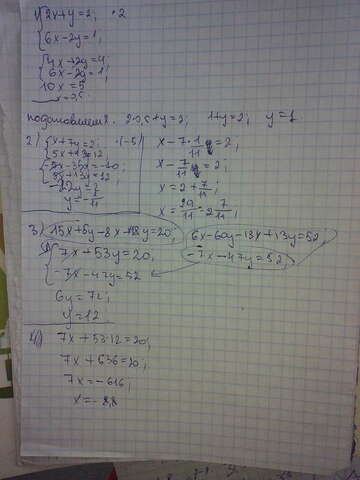 1) { 2x+y=2; ·2
{ 6x-2y=1;
{ 4x+2y=4;
{ 6x-2y=1;
10x=5
x=0,5
подставляем. 2·0,5+y=2; 1+y=2; y=1
2) { x+7y=2; ·(-5)
{ 5x+13=12;
{ -5x-35y=-10;
{ 5x+13y=12;
-22y=2
y=-1/11
x-7·1/11=2;
x-7/11=2;
x=2+7/11;
x=29/11=2 7/11;
3) 15x+5y-8x+48y=20;
6x-60y-13x+13y=52;
{ 7x+53y=20;
{ -7x-47y=52
-7x-47y=52;
6y=72;
y=12
7x+53·12=20;
7x+636=20;
7x=-616;
x=-88